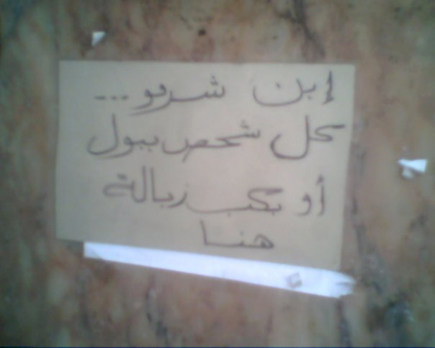 إبن شرمو...
كل شخص ببول
أو بكب زبالة
هنا